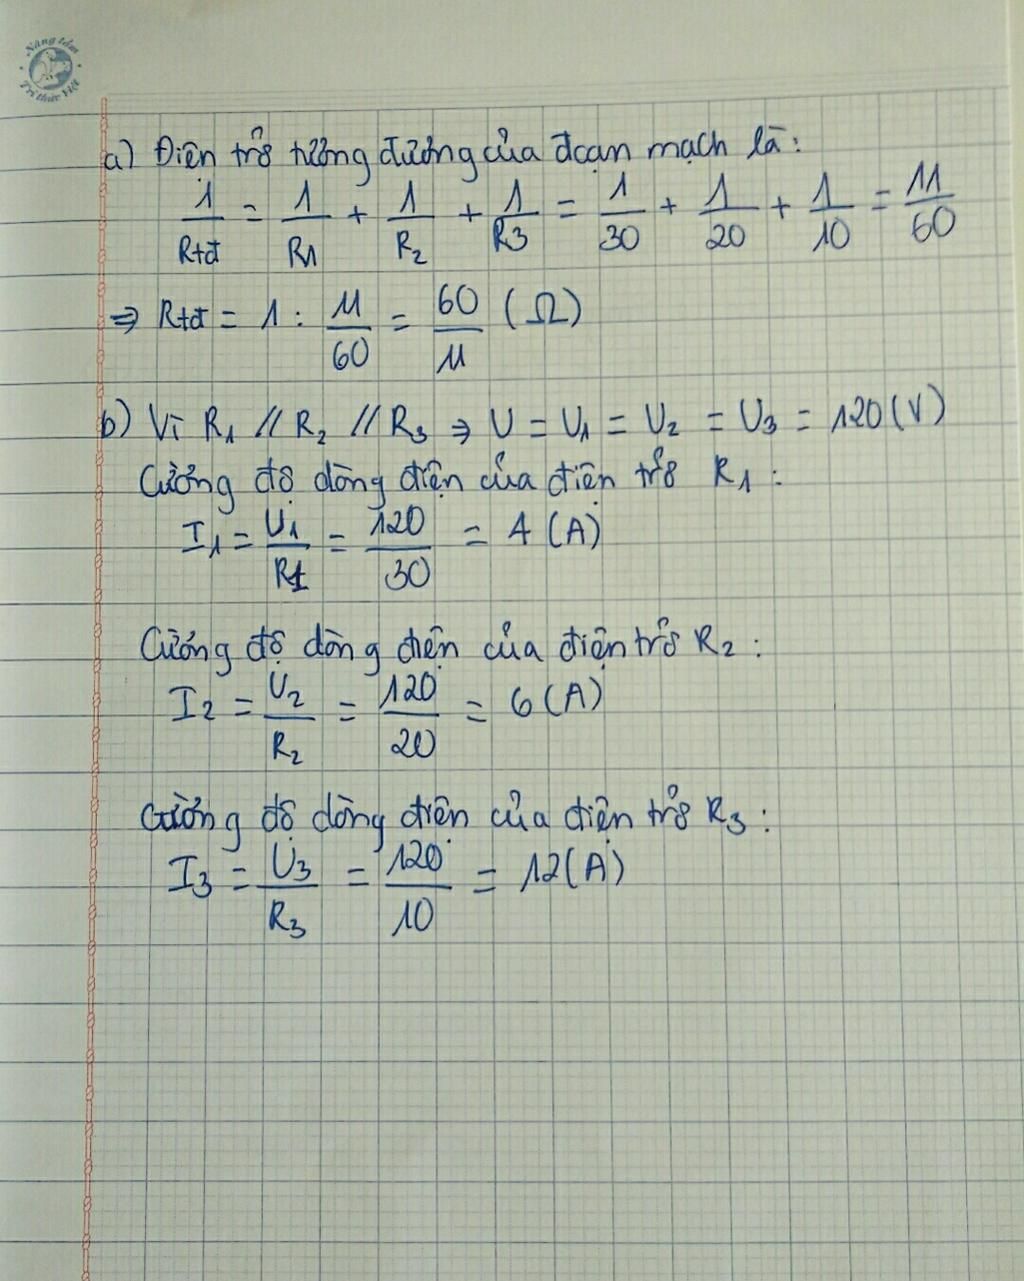 Nâng tầm
Tri thức Việt
a) Điện trở tương đương của đoạn mạch là:
1/Rtđ = 1/R1 + 1/R2 + 1/R3 = 1/30 + 1/20 + 1/10 = 11/60
⇒ Rtđ = 1 : 11/60 = 60/11 (Ω)
b) Vì R1 // R2 // R3 ⇒ U = U1 = U2 = U3 = 120 (V)
Cường độ dòng điện của điện trở R1 :
I1 = U1/R1 = 120/30 = 4 (A)
Cường độ dòng điện của điện trở R2 :
I2 = U2/R2 = 120/20 = 6 (A)
Cường độ dòng điện của điện trở R3 :
I3 = U3/R3 = 120/10 = 12 (A)